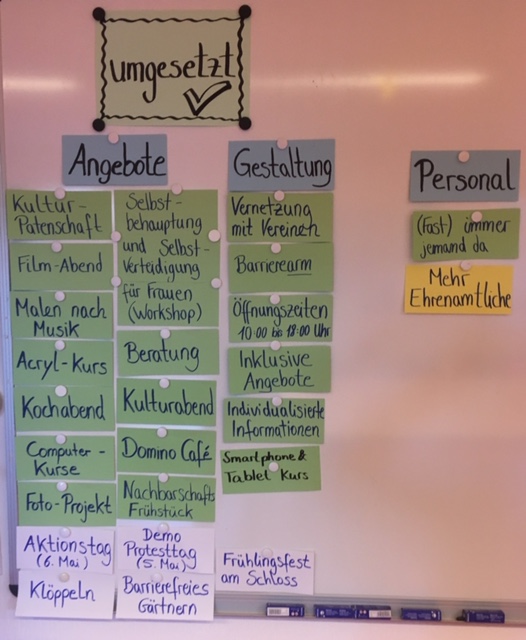 umgesetzt
Angebote
Kultur-
Patenschaft
Film-Abend
Malen nach
Musik
Acryl-Kurs
Kochabend
Computer-
Kurse
Foto-Projekt
Aktionstag
(6. Mai)
Klöppeln
Selbst-
behauptung
und Selbst-
Verteidigung
für Frauen
(Workshop)
Beratung
Kulturabend
Domino Café
Nachbarschafts
Frühstück
Demo
Protesttag
(5. Mai)
Barrierefreies
Gärtnern
Gestaltung
Vernetzung
mit Vereinen
Barrierearm
Öffnungszeiten
10:00 bis 18:00 Uhr
Inklusive
Angebote
Individualisierte
Informationen
Smartphone &
Tablet Kurs
Frühlingsfest
am Schloss
Personal
(Fast) immer
jemand da
Mehr
Ehrenamtliche